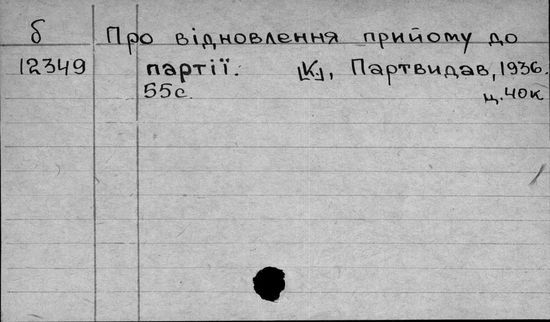 б Про відновлення прийому до
12349 партії. [К.], Партвидав, 1936.
55с. ц. 40к